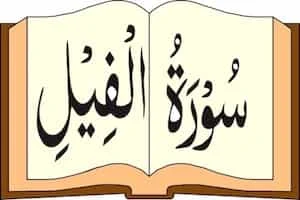 سُوْرَةُ الْفِيْلِ